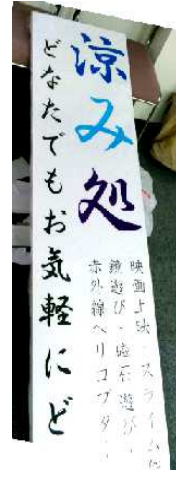 涼み処
どなたでもお気軽にど
映画上映・スライム他
鏡遊び・磁石遊び・
赤外線ヘリコプター